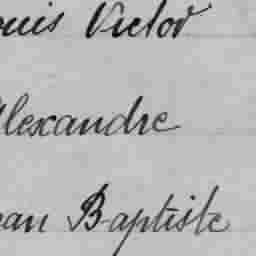 ouis Victor
lexandre
ean Baptiste